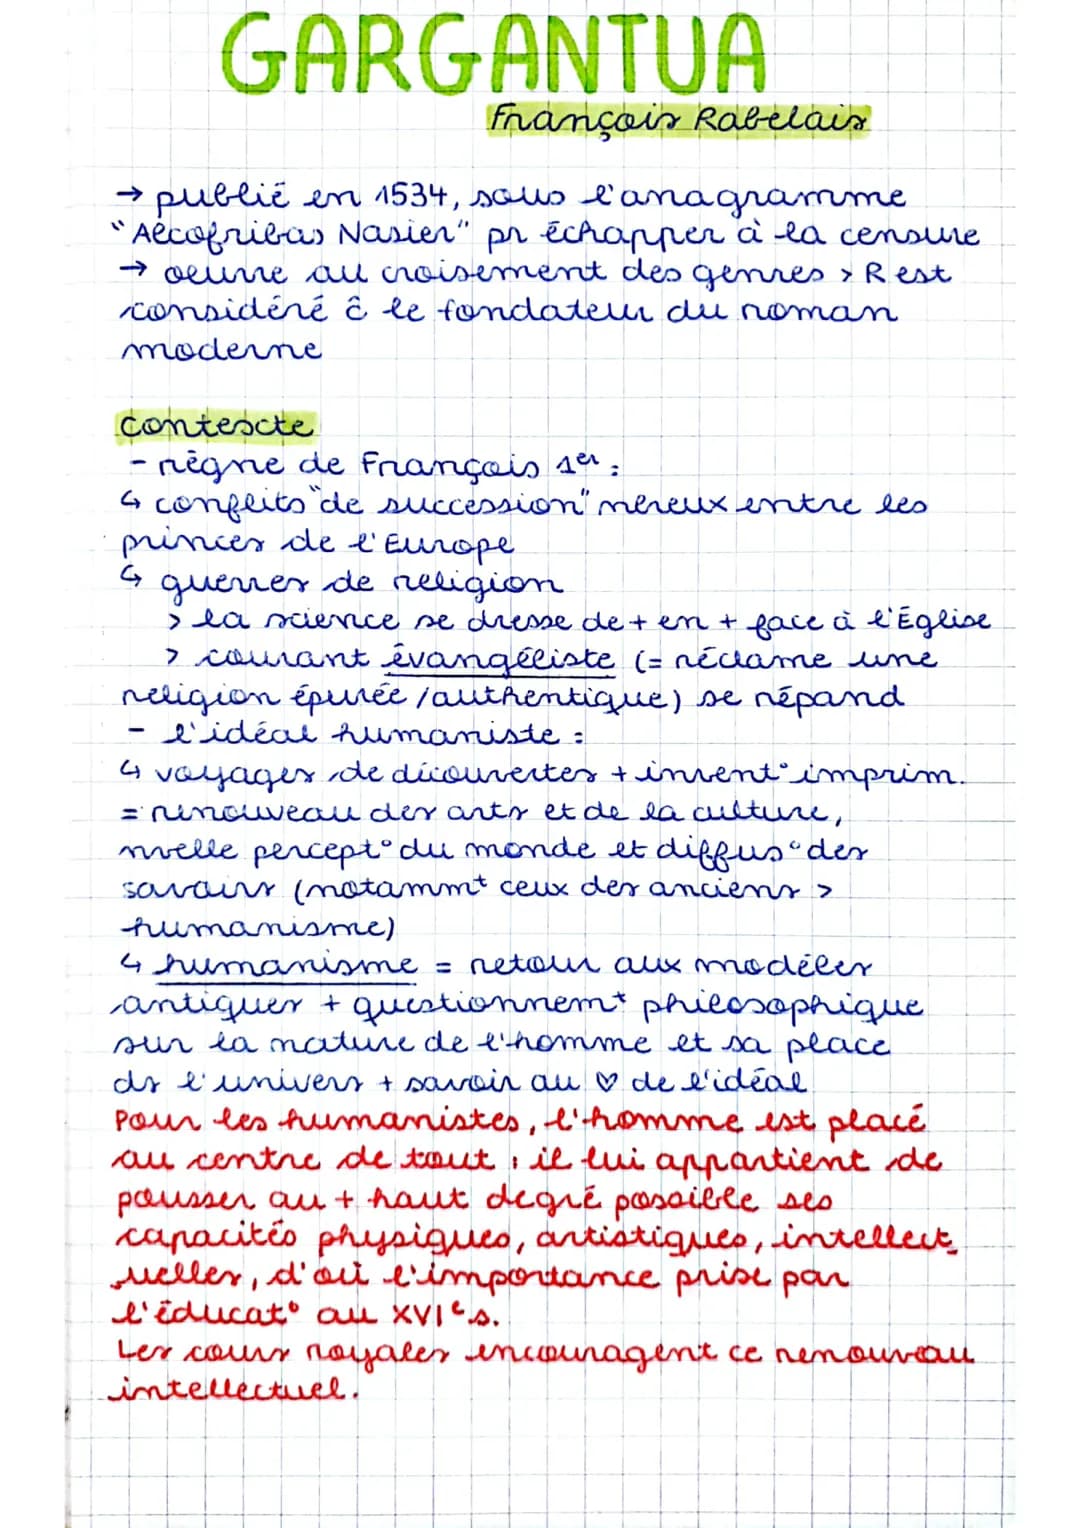 GARGANTUA
François Rabelais
→ publié en 1534, sous l'anagramme
"Alcofribas Nasier" pr échapper à la censure
→ oeuvre au croisement des genres > R est
considéré ĉ le fondateur du roman
moderne
contexte
- règne de François 1er :
↳ conflits "de succession" mereux entre les
princes de l'Europe
↳ guerres de religion
> la science se dresse de + en + face à l'Église
> courant évangéliste (= réclame une
religion épurée / authentique) se répand
- l'idéal humaniste :
↳ voyages de découvertes + invent° imprim.
= renouveau des arts et de la culture,
nvelle percept° du monde et diffus° des
savoirs (notammt ceux des anciens >
humanisme)
↳ humanisme = retour aux modèles
antiques + questionnemt philosophique
sur la nature de l'homme et sa place
ds l'univers + savoir au ♡ de l'idéal
Pour les humanistes, l'homme est placé
au centre de tout : il lui appartient de
pousser au + haut degré possible ses
capacités physiques, artistiques, intellect
uelles, d'où l'importance prise par
l'éducat° au XVIe s.
Les cours royales encouragent ce renouveau
intellectuel.